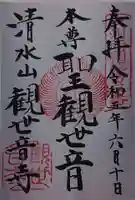 奉拝 令和二年六月十日
本尊 聖観世音
清水山 観世音寺